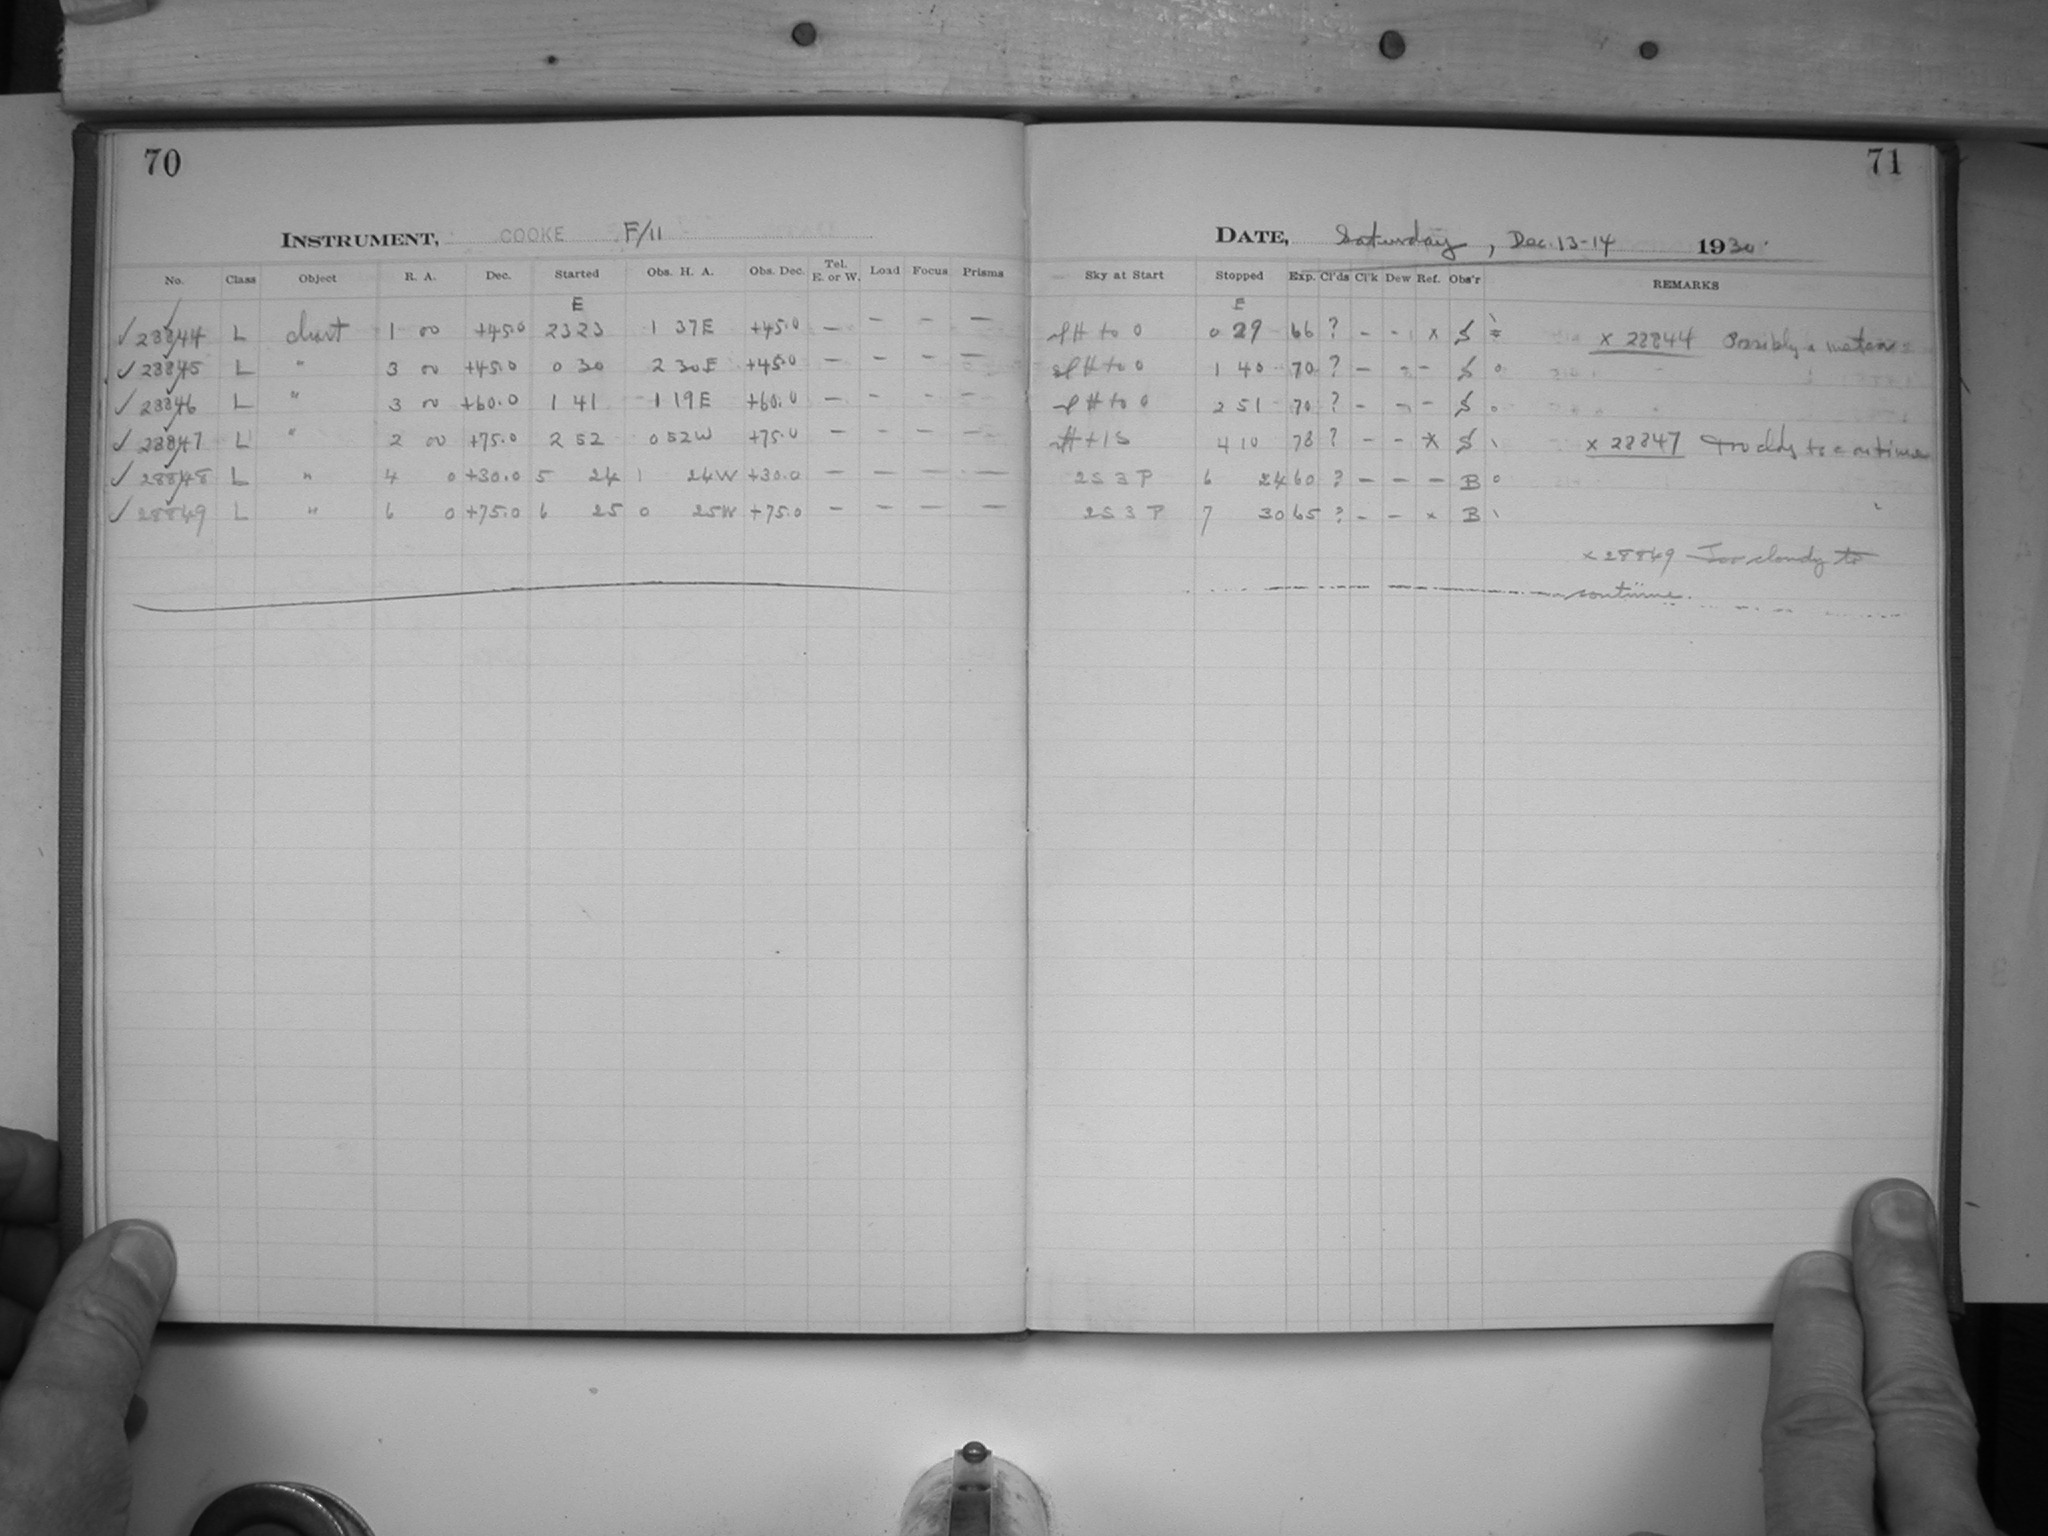 70
71
INSTRUMENT, COOKE F/11
DATE, Saturday, Dec. 13-14 1930
No. Class Object R. A. Dec. Started Obs. H. A. Obs. Dec. Tel. E. or W. Load Focus Prisms Sky at Start Stopped Exp. Cl'ds Cl'k Dew Ref. Obs'r REMARKS
E E
✓ 28844 L chart 1 00 +45.0 23 23 1 37E +45.0 — — — — to 0 0 29 66 ? - - x S x 28844 Possibly a meteor
✓ 28845 L " 3 00 +45.0 0 30 2 30E +45.0 — — — — to 0 1 40 70 ? - - - S
✓ 28846 L " 3 00 +60.0 1 41 1 19E +60.0 — — — — to 0 2 51 70 ? - - - S
✓ 28847 L " 2 00 +75.0 2 52 0 52W +75.0 — — — — + 1S 4 10 78 ? - - x S x 28847 to continue
✓ 28848 L " 4 0 +30.0 5 24 1 24W +30.0 — — — — 2S 3P 6 24 60 ? - - - B
✓ 28849 L " 6 0 +75.0 6 25 0 25W +75.0 — — — — 2S 3P 7 30 65 ? - - x B
x 28849 Too cloudy to
continue.